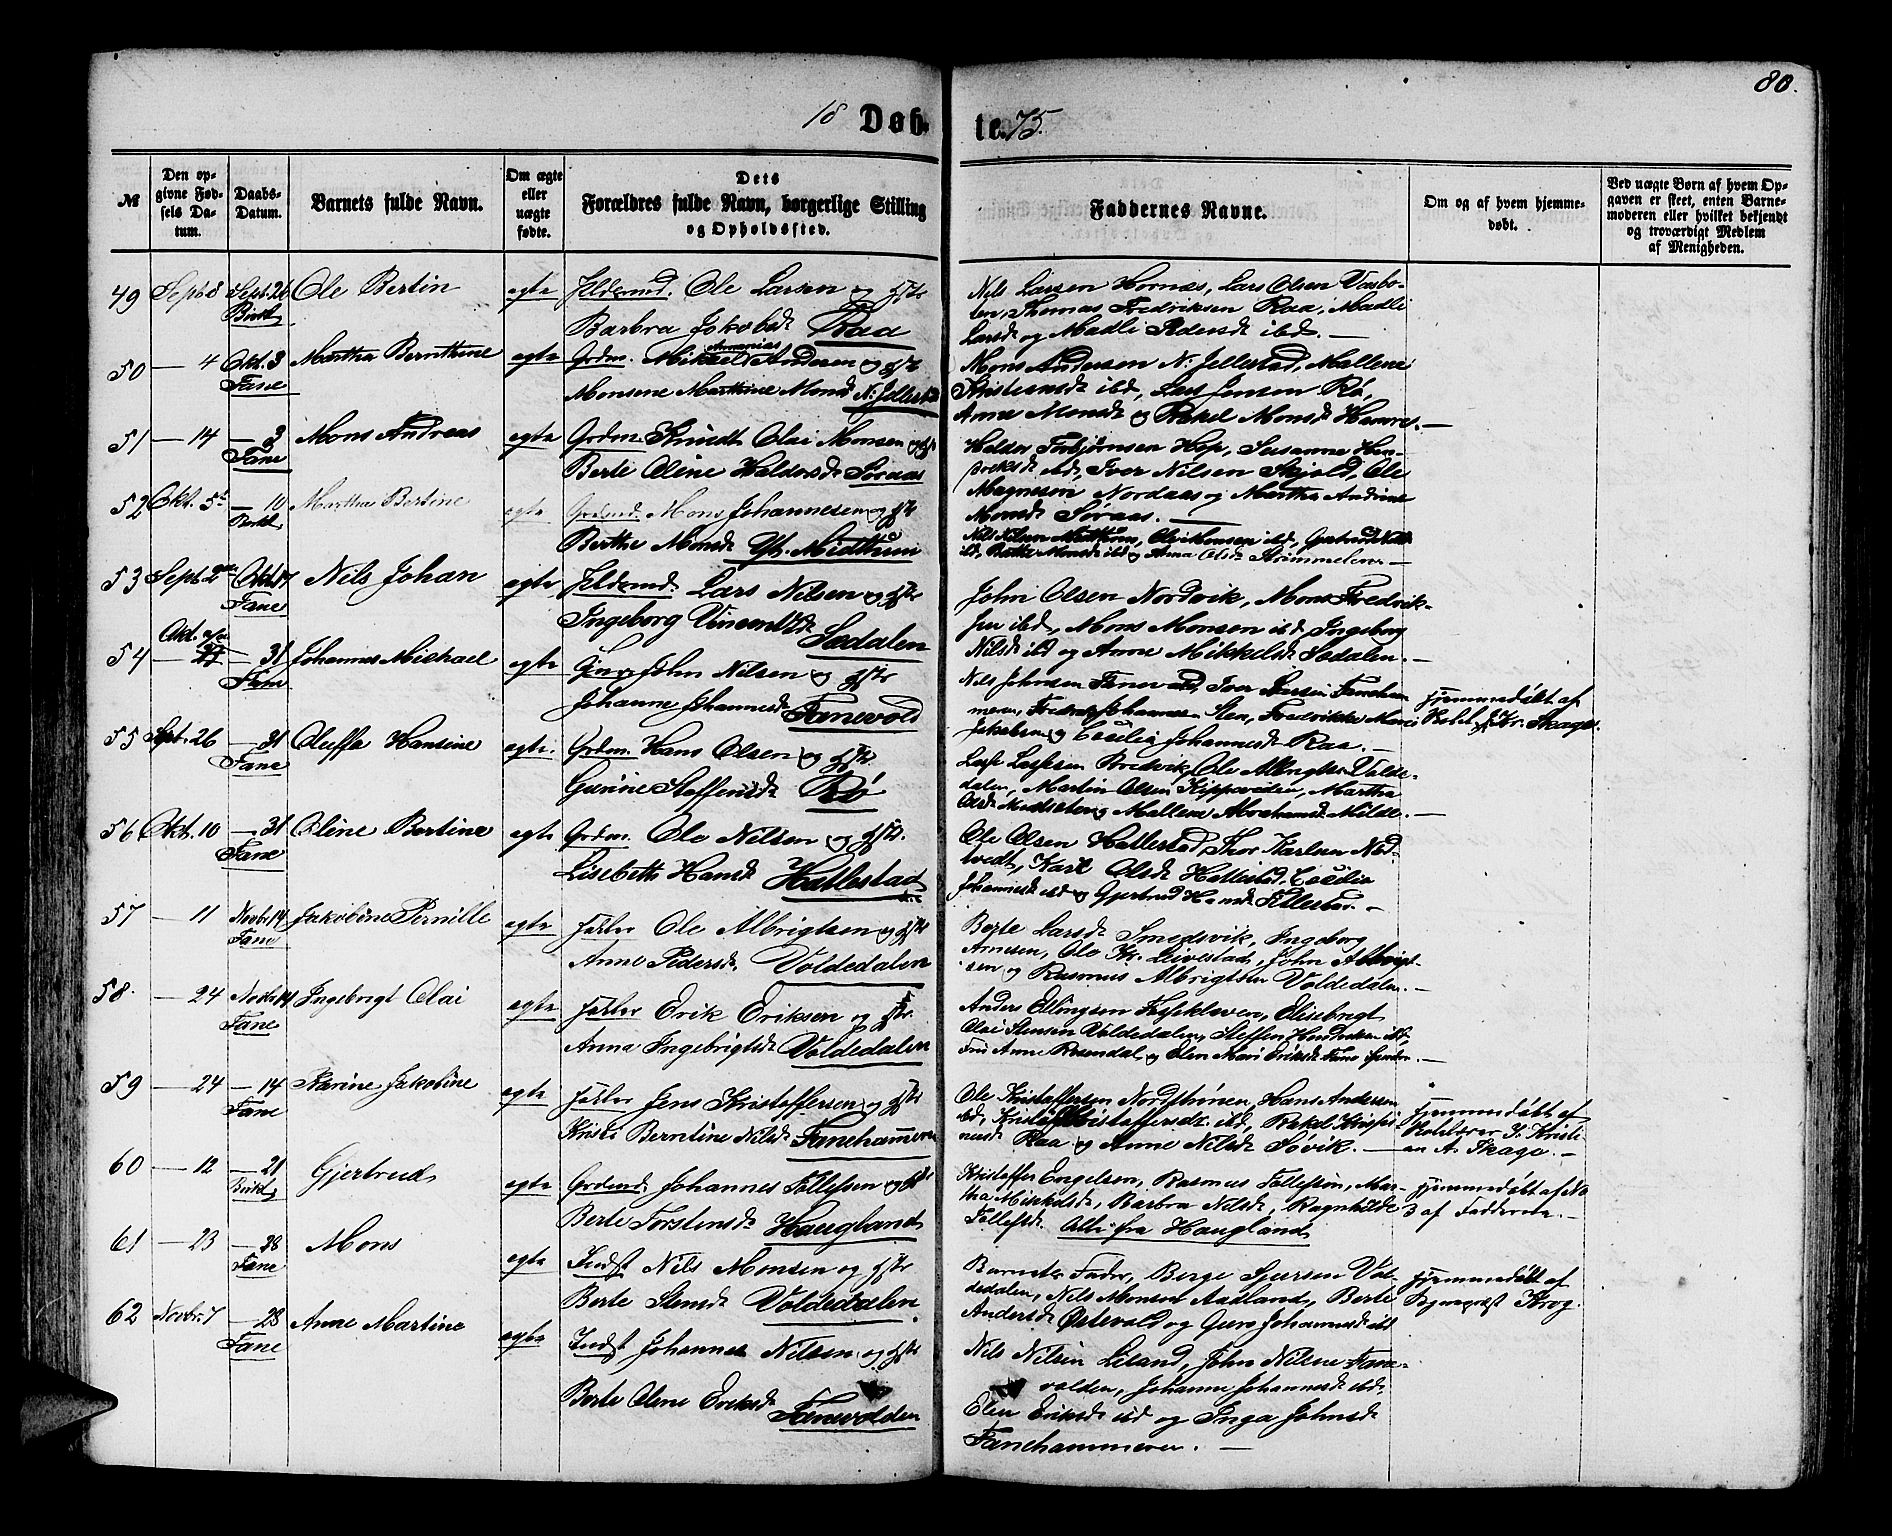 80.
18 Døb- te. 75.
№
Den op-
givne Fød-
sels Da-
tum.
Daabs-
Datum.
Barnets fulde Navn.
Om ægte
eller
uægte
fødte.
Dets
Forældres fulde Navn, borgerlige Stilling
og Opholdssted.
Faddernes Navne.
Om og af hvem hjemme-
døbt.
Ved uægte Børn af hvem Op-
gaven er skeet, enten Barne-
moderen eller hvilket bekjendt
og troværdigt Medlem
af Menigheden.
49 Sept. 8 Sept. 26 Ole Bertin egte Ole Larsen og Hstr
Birkl
Barbra Jakobsd Raa
Nils Larsen Hornæs, Lars Olsen
Thomas Fredriksen Raa, Madli
Larsd og Madli Pedersd ibd. —
50 — 4 Okt. 3 Martha Bernthine egte Grdm. Mikael Andersen og Hstr
Fane
Monsene Marthine Monsd N. Jellestad
Mons Andersen N. Jellestad, Mallene
Kristiansd ibd, Lars Jensen Rø,
Anne Monsd og Rakel Monsd Hamre. —
51 — 14 — 3 Mons Andreas egte Grdm. Olai Monsen og Hstr
Fane
Berte Oline Haldorsd Søraas
Haldor Torbjørnsen Hop, Susanne Hen-
ibd, Iver Nilsen Skjold, Ole
Magnesen Nordaas og Martha Andrine
Monsd Søraas. —
52 Okt. 5 — 10 Martha Bertine egte Mons Johannesen og Hstr
Birkl
Berthe Monsd Yt. Midthun
Nils Nilsen Midthun, ibd, Gjertrud
ibd, Berthe Monsd ibd og Anna Olsd —
53 Sept. 2 Okt. 17 Nils Johan egte Lars Nilsen og Hstr
Fane
Ingeborg Vincentsd Sædalen
John Olsen Nordvik, Mons Fredrik-
sen ibd, Mons Monsen ibd, Ingeborg
Nilsd ibd og Anne Mikkelsd Sædalen. —
54 Okt. — 31 Johannes Mickael egte John Nilsen og Hstr
Fane
Johanne Johannesd Fanevold
Nils Johnsen Fanevold, Iver Larsen Faneham-
meren, Fredrik Johannes Fredrikke Marie
Jakobsen og Cecilia Johannesd Raa. —
Hjemmedøbt af
Kr. Skage.
55 Sept. 26 — 31 Oluffa Hansine egte. Grdm. Hans Olsen og Hstr.
Fane
Gurine Steffensd Rø
Bredvik, Ole Albrigtsen Volde-
dalen, Martin Olsen Kipperviden, Martha
Olsd og Mallene Abrahamsd Milde. —
56 Okt. 10 — 31 Oline Bertine egte Grdm. Ole Nilsen og Hstr.
Fane
Lisebeth Hansd Hatlestad
Ole Olsen Hatlestad, Thor Karlsen
Olsd Hatlestad, Cecilia
Johannesd ibd og Gjertrud Hansd —
57 — 11 Novbr. 14 Jakobine Pernille egte Ole Albrigtsen og Hstr
Fane
Anne Pedersd. Voldedalen
Berte Larsd Smedsvik, Ingeborg
Arnesen, Ole Kr. Leivestad, John Albrigt-
sen og Rasmus Albrigtsen Voldedalen. —
58. — 24 Novbr. 14 Ingebrigt Olai egte Erik Eriksen og Hstr.
Fane
Anna Ingebrigtsd Voldedalen
Anders Ellingsen Elisebregt
Olai Stensen Voldedalen, Steffen ibd,
Anne Rosendal og Elen Mari Eriksd —
59 — 24 — 14 Karine Jakobine egte Jens Kristoffersen og Hstr
Fane
Kristi Berntine Nilsd Fanehammeren
Ole Kristoffersen Nordstrønen, Hans Andersen
ibd, Kristoffersd ibd, Rakel
Raa og Anne Nilsd Søvik. —
Hjemmedøbt af
Kristi-
an A. Skage. —
60 — 12 — 21 Gjertrud egte Johannes Tollefsen og Hstr
Birkl
Berte Torstensd Haugland
Kristoffer Engelsen, Rasmus Tollefsen, Mar-
tha Mikkelsd, Barbra Nilsd, Ragnhilde
Tollefsd. Alle fra Haugland
Hjemmedøbt af No
3 af Fadderne. —
61 — 23 — 28 Mons egte Indst Nils Monsen og Hstr
Fane
Berte Stensd Voldedalen.
Barnets Fader, Berge Sjursen Vol-
dedalen, Nils Monsen Aadland, Berte
Andersd Østevold og Guro Johannesd ibd
Hjemmedøbt af
Krog.
62 Novbr. 7 — 28 Anne Martine egte Indst Johannes Nilsen og Hstr
Fane
Berte Oline Eriksd Fanevolden
Nils Nilsen Liland, John Nilsen Fane-
volden, Johanne Johannesd ibd,
Elen Eriksd ibd og Inga Johnsd
Fanehammeren. —